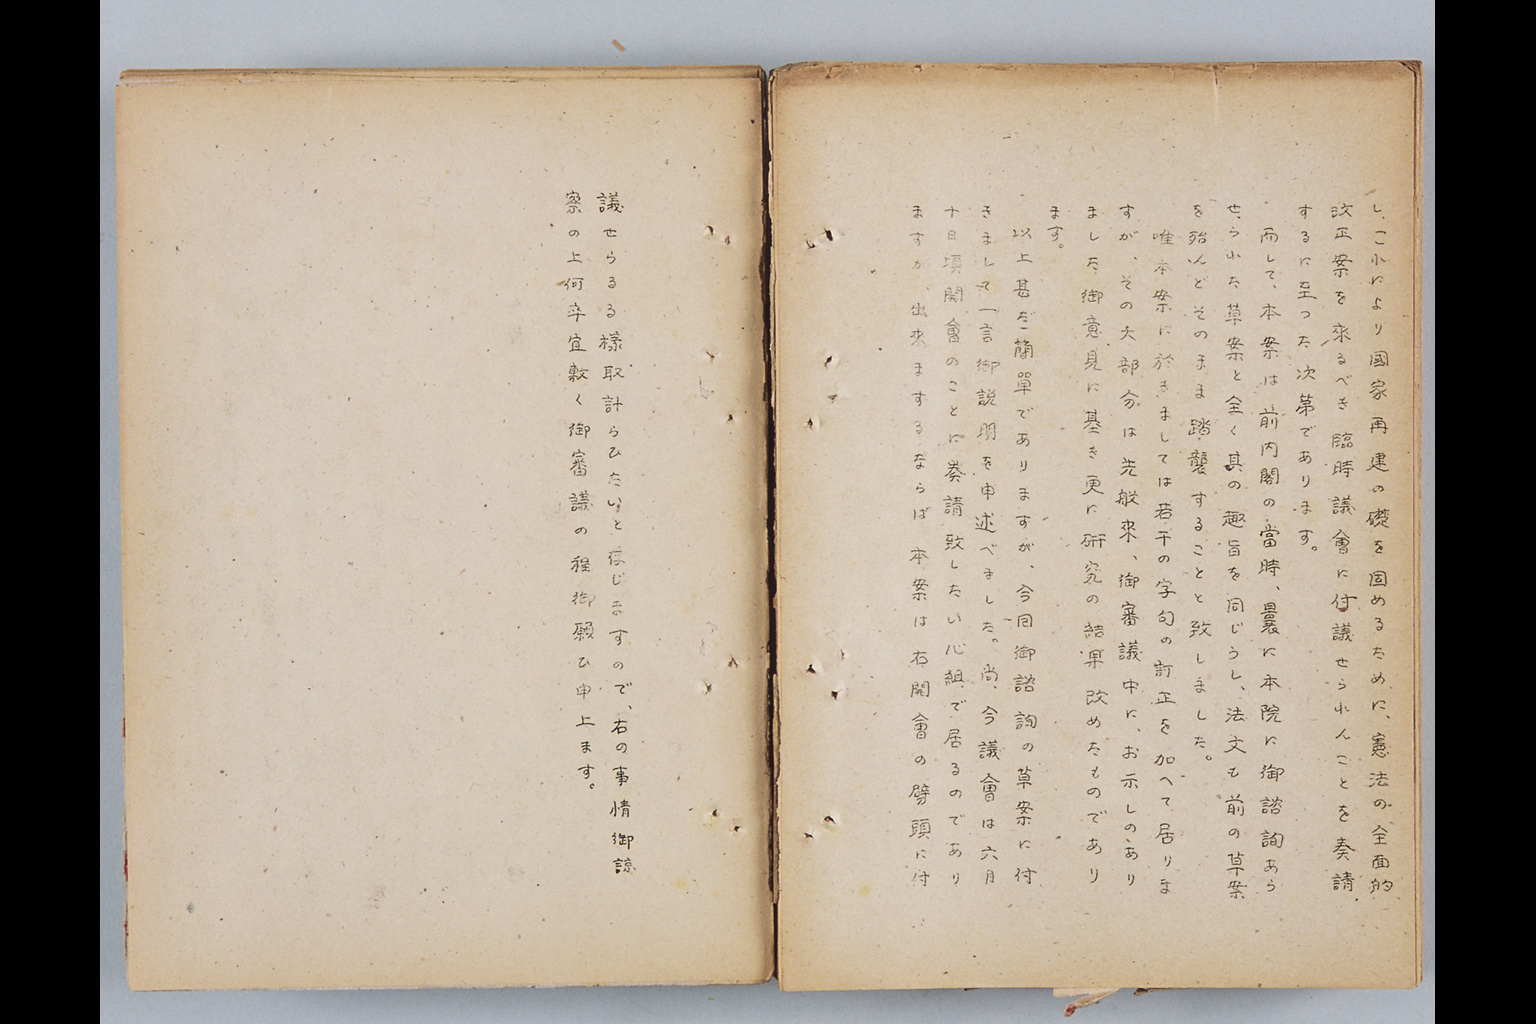 し、これにより國家再建の礎を固めるために、憲法の全面的
改正案を來るべき臨時議會に付議せられんことを奏請
するに至つた次第であります。
而して、本案は前内閣の當時、曩に本院に御諮詢あら
せられた草案と全く其の趣旨を同じうし、法文も前の草案
を殆んどそのまま踏襲することと致しました。
唯本案に於きましては若干の字句の訂正を加へて居りま
すが、その大部分は先般來、御審議中に、お示しのあり
ました御意見に基き更に研究の結果改めたものであり
ます。
以上甚だ簡單でありますが、今回御諮詢の草案に付
きまして一言御説明を申述べました。尚、今議會は六月
十日頃開會のことに奏請致したい心組で居るのであり
ますが、出來まするならば本案は右開會の劈頭に付
議せらるる樣取計らひたいと存じますので、右の事情御諒
察の上何卒宜敷く御審議の程御願ひ申上ます。